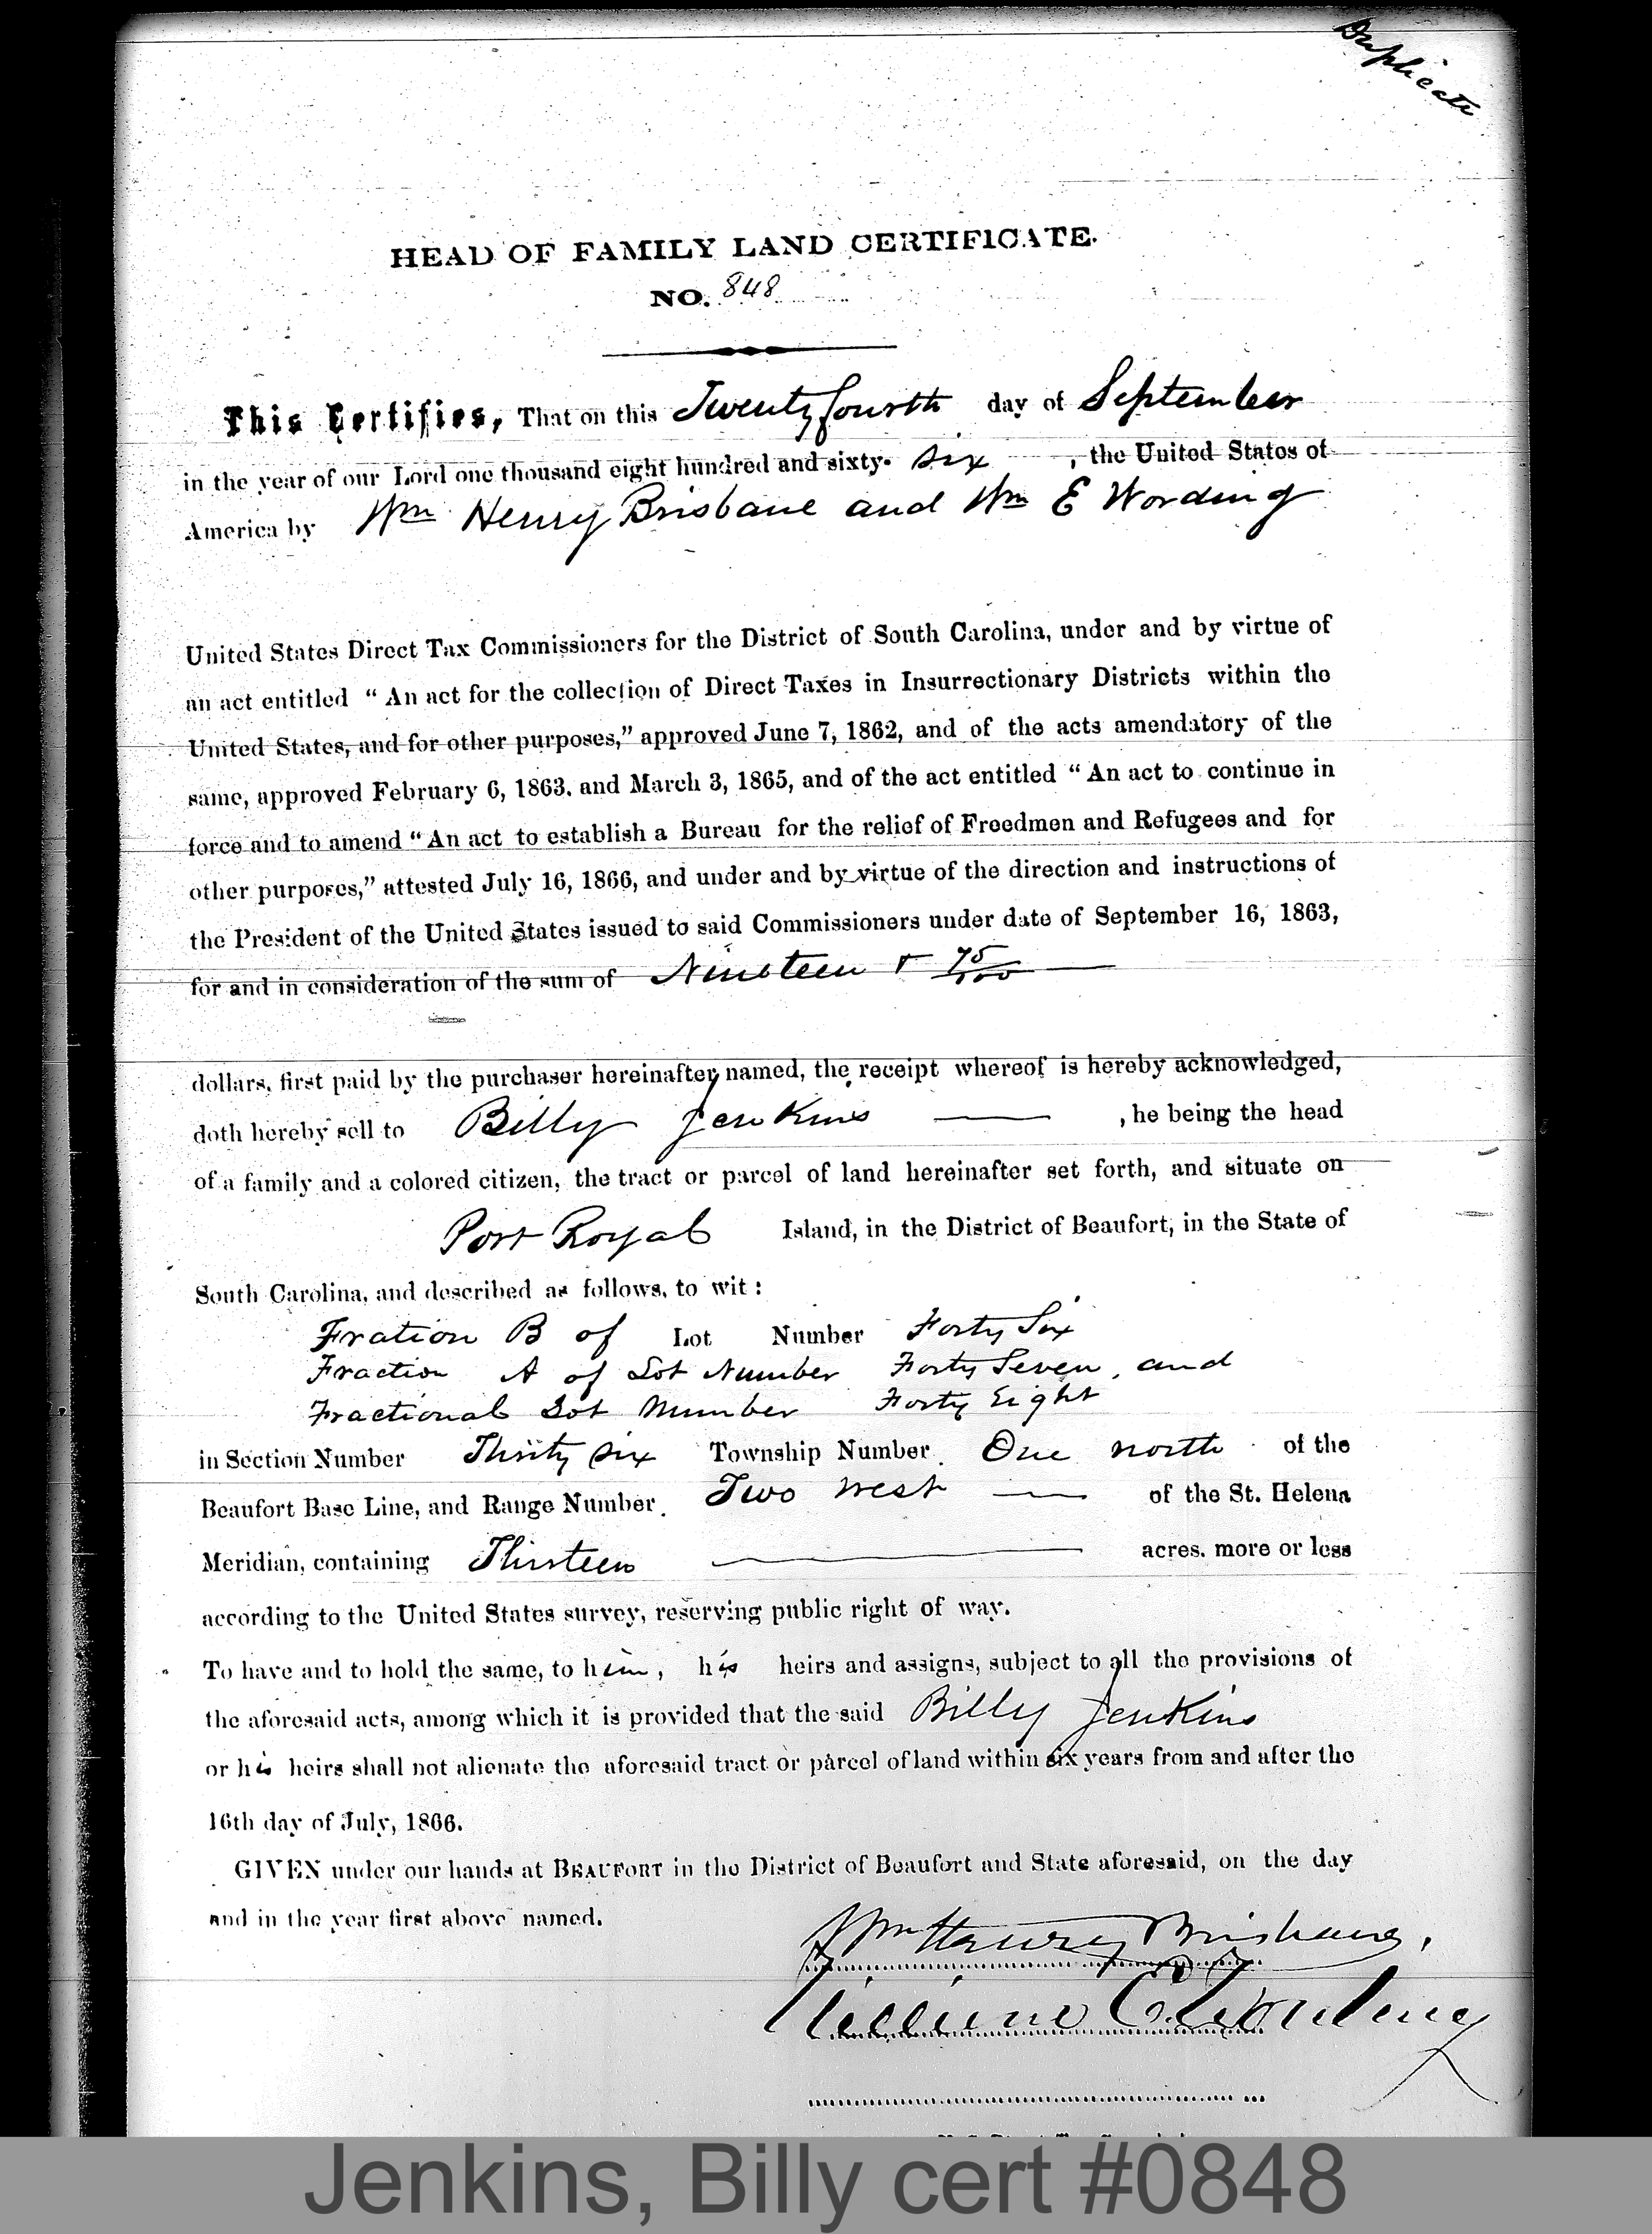 Duplicate
HEAD OF FAMILY LAND CERTIFICATE.
NO. 848
This Certifies, That on this Twenty fourth day of September
in the year of our Lord one thousand eight hundred and sixty- six , the United States of
America by Wm Henry Brisbane and Wm E Wording
United States Direct Tax Commissioners for the District of South Carolina, under and by virtue of
an act entitled “ An act for the collection of Direct Taxes in Insurrectionary Districts within the
United States, and for other purposes,” approved June 7, 1862, and of the acts amendatory of the
same, approved February 6, 1863. and March 3, 1865, and of the act entitled “ An act to continue in
force and to amend “ An act to establish a Bureau for the relief of Freedmen and Refugees and for
other purposes,” attested July 16, 1866, and under and by virtue of the direction and instructions of
the President of the United States issued to said Commissioners under date of September 16, 1863,
for and in consideration of the sum of Nineteen & 75/100
dollars, first paid by the purchaser hereinafter named, the receipt whereof is hereby acknowledged,
doth hereby sell to Billy Jenkins , he being the head
of a family and a colored citizen, the tract or parcel of land hereinafter set forth, and situate on
Port Royal Island, in the District of Beaufort, in the State of
South Carolina, and described as follows, to wit :
Fration B of Lot Number Forty Six
Fraction A of Lot Number Forty Seven, and
Fractional Lot Number Forty Eight
in Section Number Thirty six Township Number One north of the
Beaufort Base Line, and Range Number Two west of the St. Helena
Meridian, containing Thirteen acres. more or less
according to the United States survey, reserving public right of way.
To have and to hold the same, to him, his heirs and assigns, subject to all the provisions of
the aforesaid acts, among which it is provided that the said Billy Jenkins
or his heirs shall not alienate the aforesaid tract or parcel of land within six years from and after the
16th day of July, 1866.
GIVEN under our hands at BEAUFORT in the District of Beaufort and State aforesaid, on the day
and in the year first above named.
Wm Henry Brisbane,
William E Wording
Jenkins, Billy cert #0848